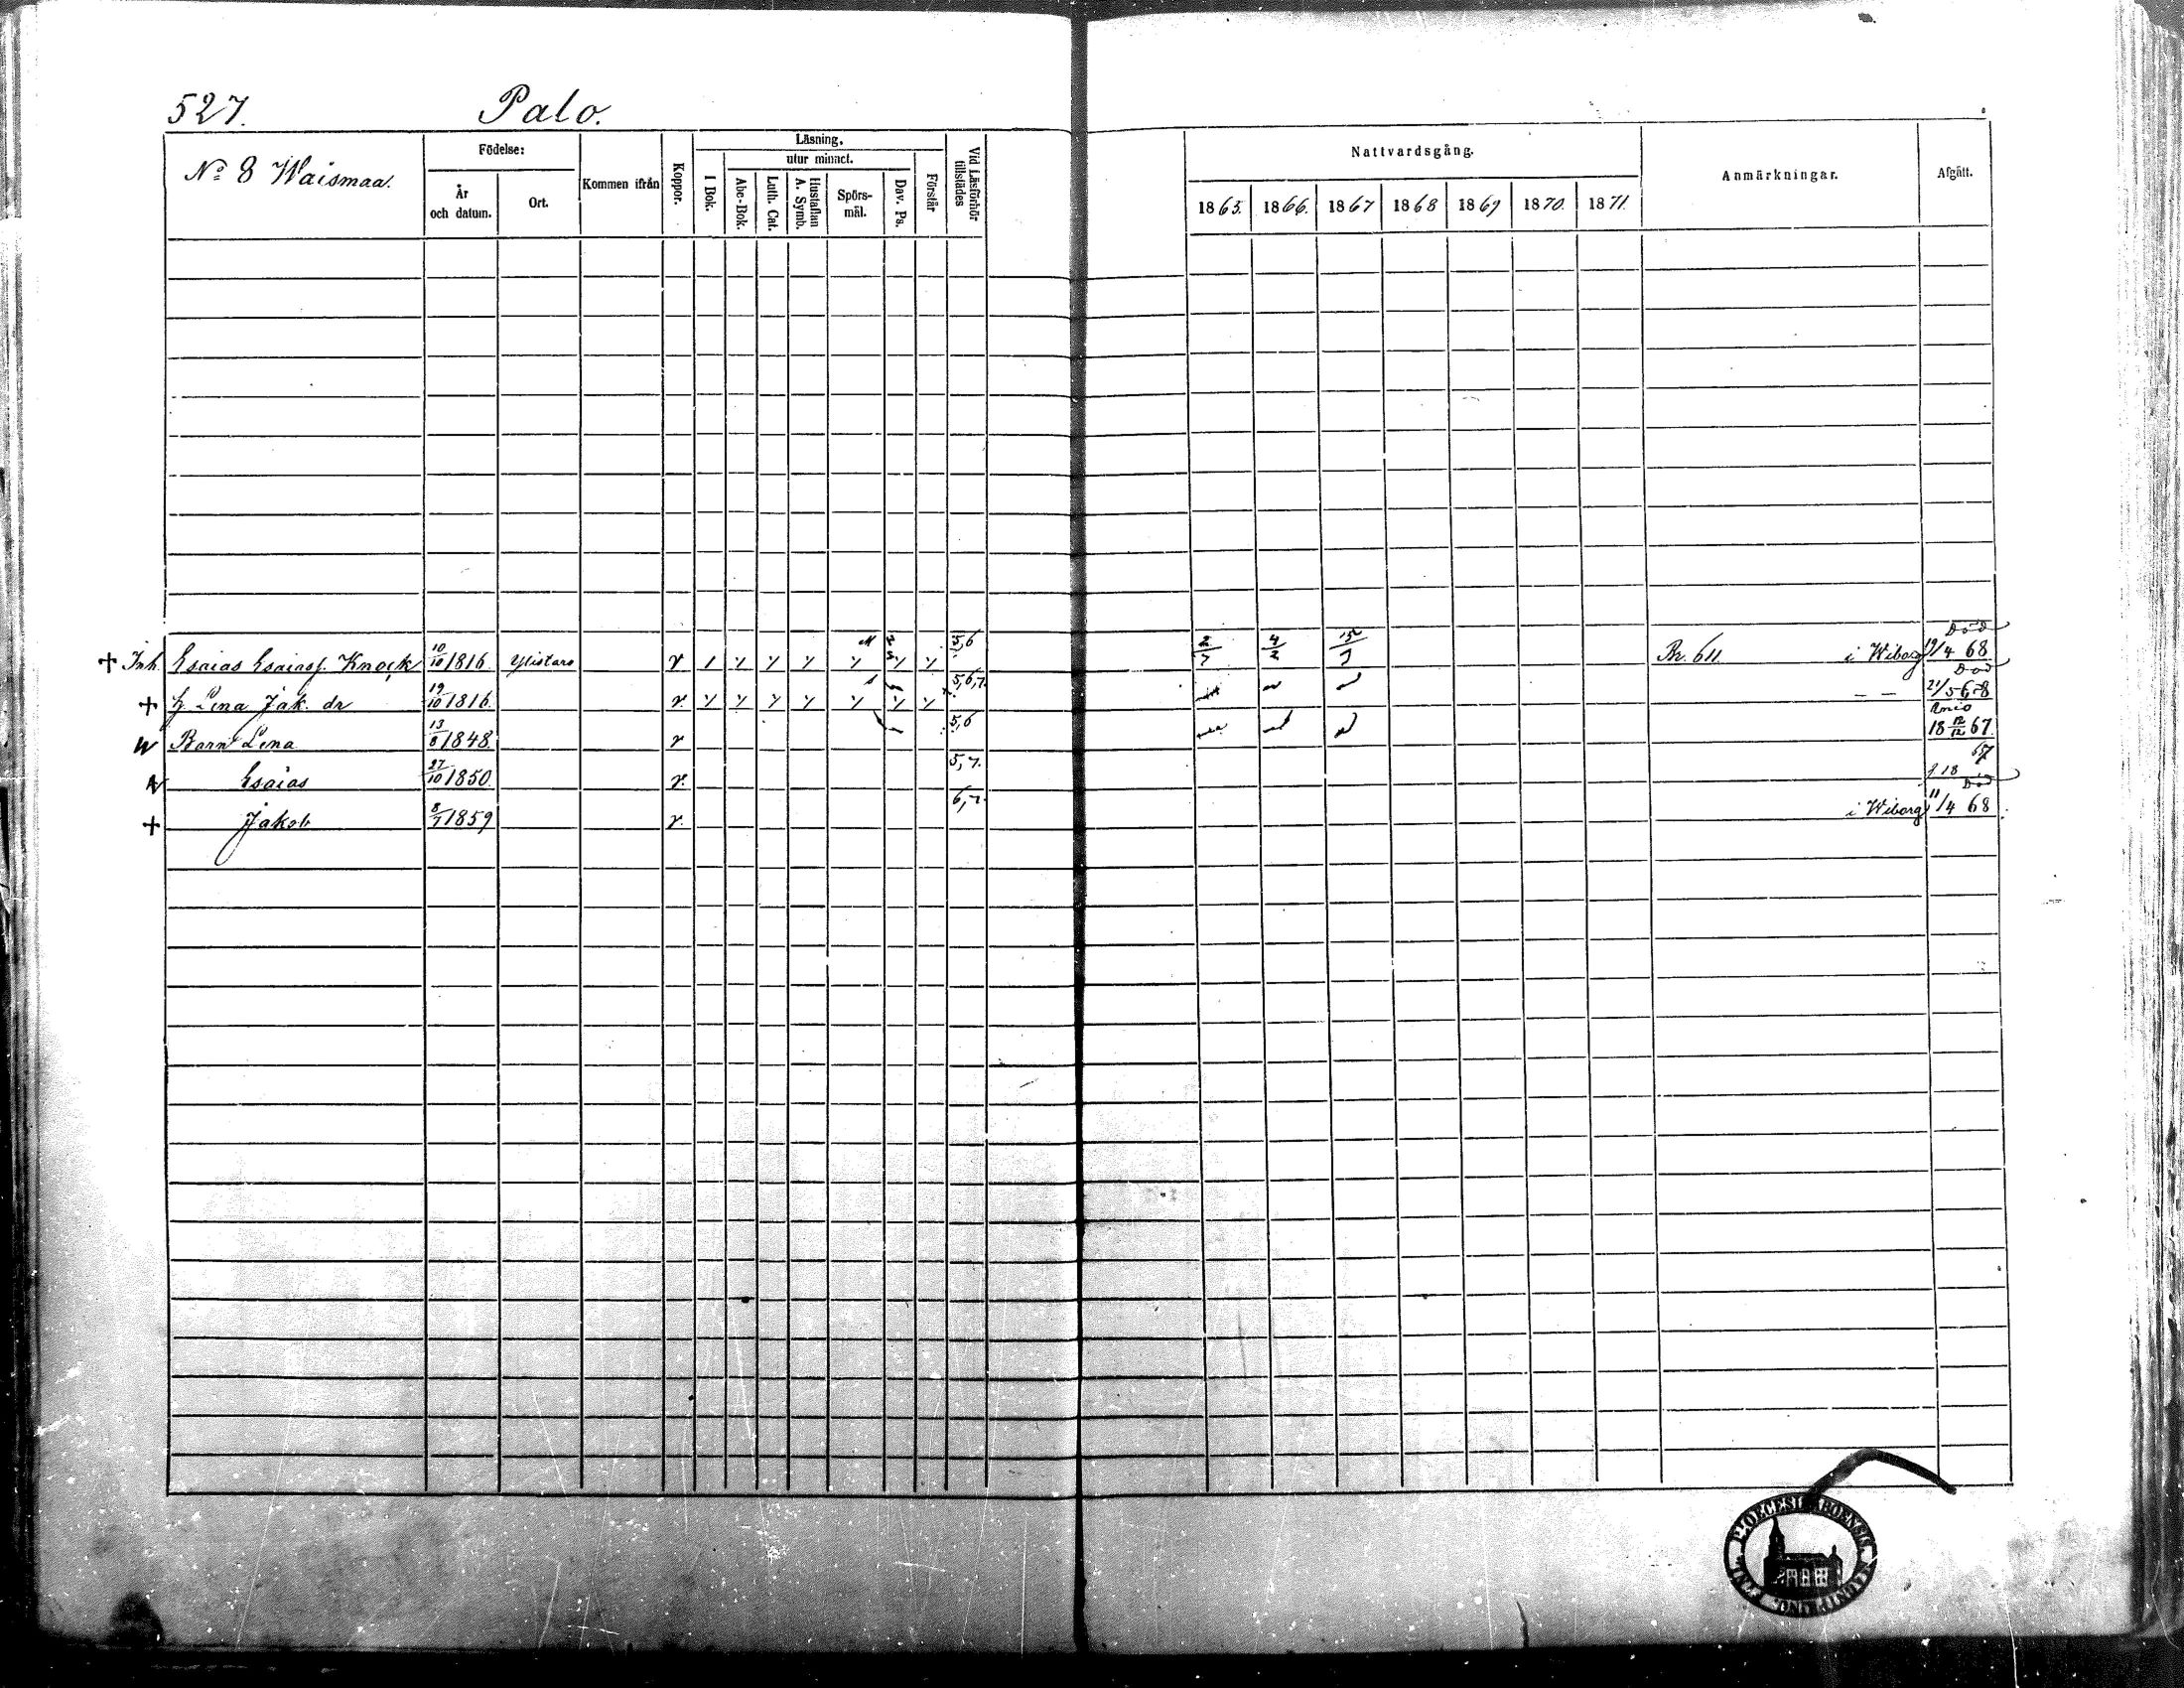 527. Palo.
No 8 Waismaa.
Födelse:
År och datum.
Ort.
Kommen ifrån
Koppor.
Läsning,
I Bok.
utur minnet.
Abc-Bok.
Luth. Cat.
Hustaflan A. Symb.
Spörs-mål.
Dav. Ps.
Förstår
Vid Läsförhör tillstädes
Nattvardsgång.
1865. 1866. 1867 1868 1869 1870. 1871.
Anmärkningar.
Afgått.
+ Inh. Esaias Esaiass. Knock 10/10 1816. Ylistaro 5,6 2/7 4/2 15/7 Br. 611 i Wiborg Död 19/4 68
+ H. Lena Jak. dr 19/10 1816. 5,6,7. — — Död 21/5 68
Barn Lena 13/8 1848. 5,6 18 12/12 67.
Esaias 27/10 1850. 5,7. 18 67
+ Jakob 8/7 1859 6,7. i Wiborg Död 11/4 68